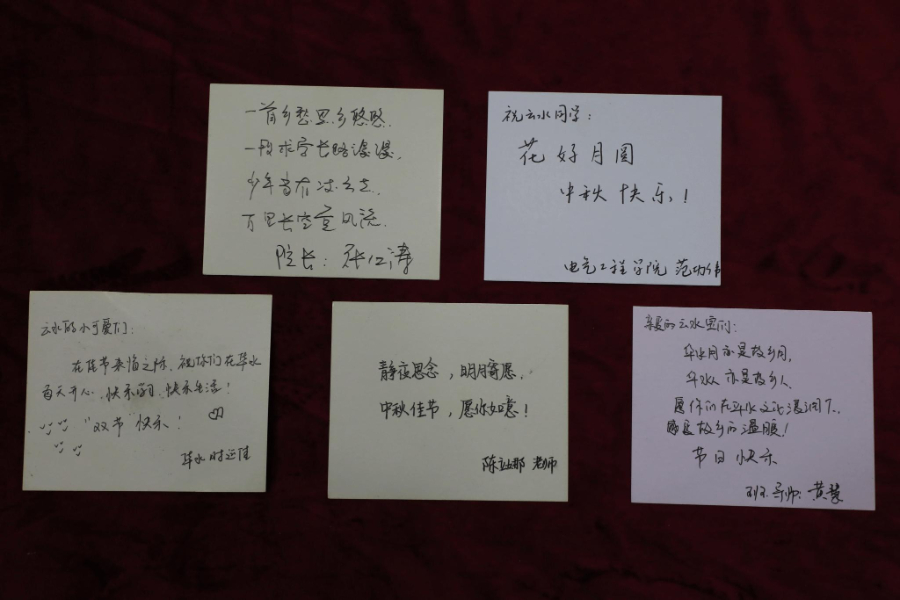 一首乡愁思乡悠悠.
一段求学长路漫漫,
少年当有凌云志.
万里长空竞风流.
院长: 张江涛
祝云水同学:
花好月圆
中秋快乐!
电气工程学院 范功伟
云水的小可爱们:
在佳节来临之际, 祝你们在华水
每天开心, 快乐学习, 快乐生活!
"双节"快乐!
华水 时运佳
静夜思念, 明月寄愿.
中秋佳节, 愿你如意!
陈远娜 老师
亲爱的云水宝们:
华水月亦是故乡月,
华水人亦是故乡人.
愿你们在华水文化浸润下,
感受故乡的温暖!
节日快乐
班导师: 黄慧